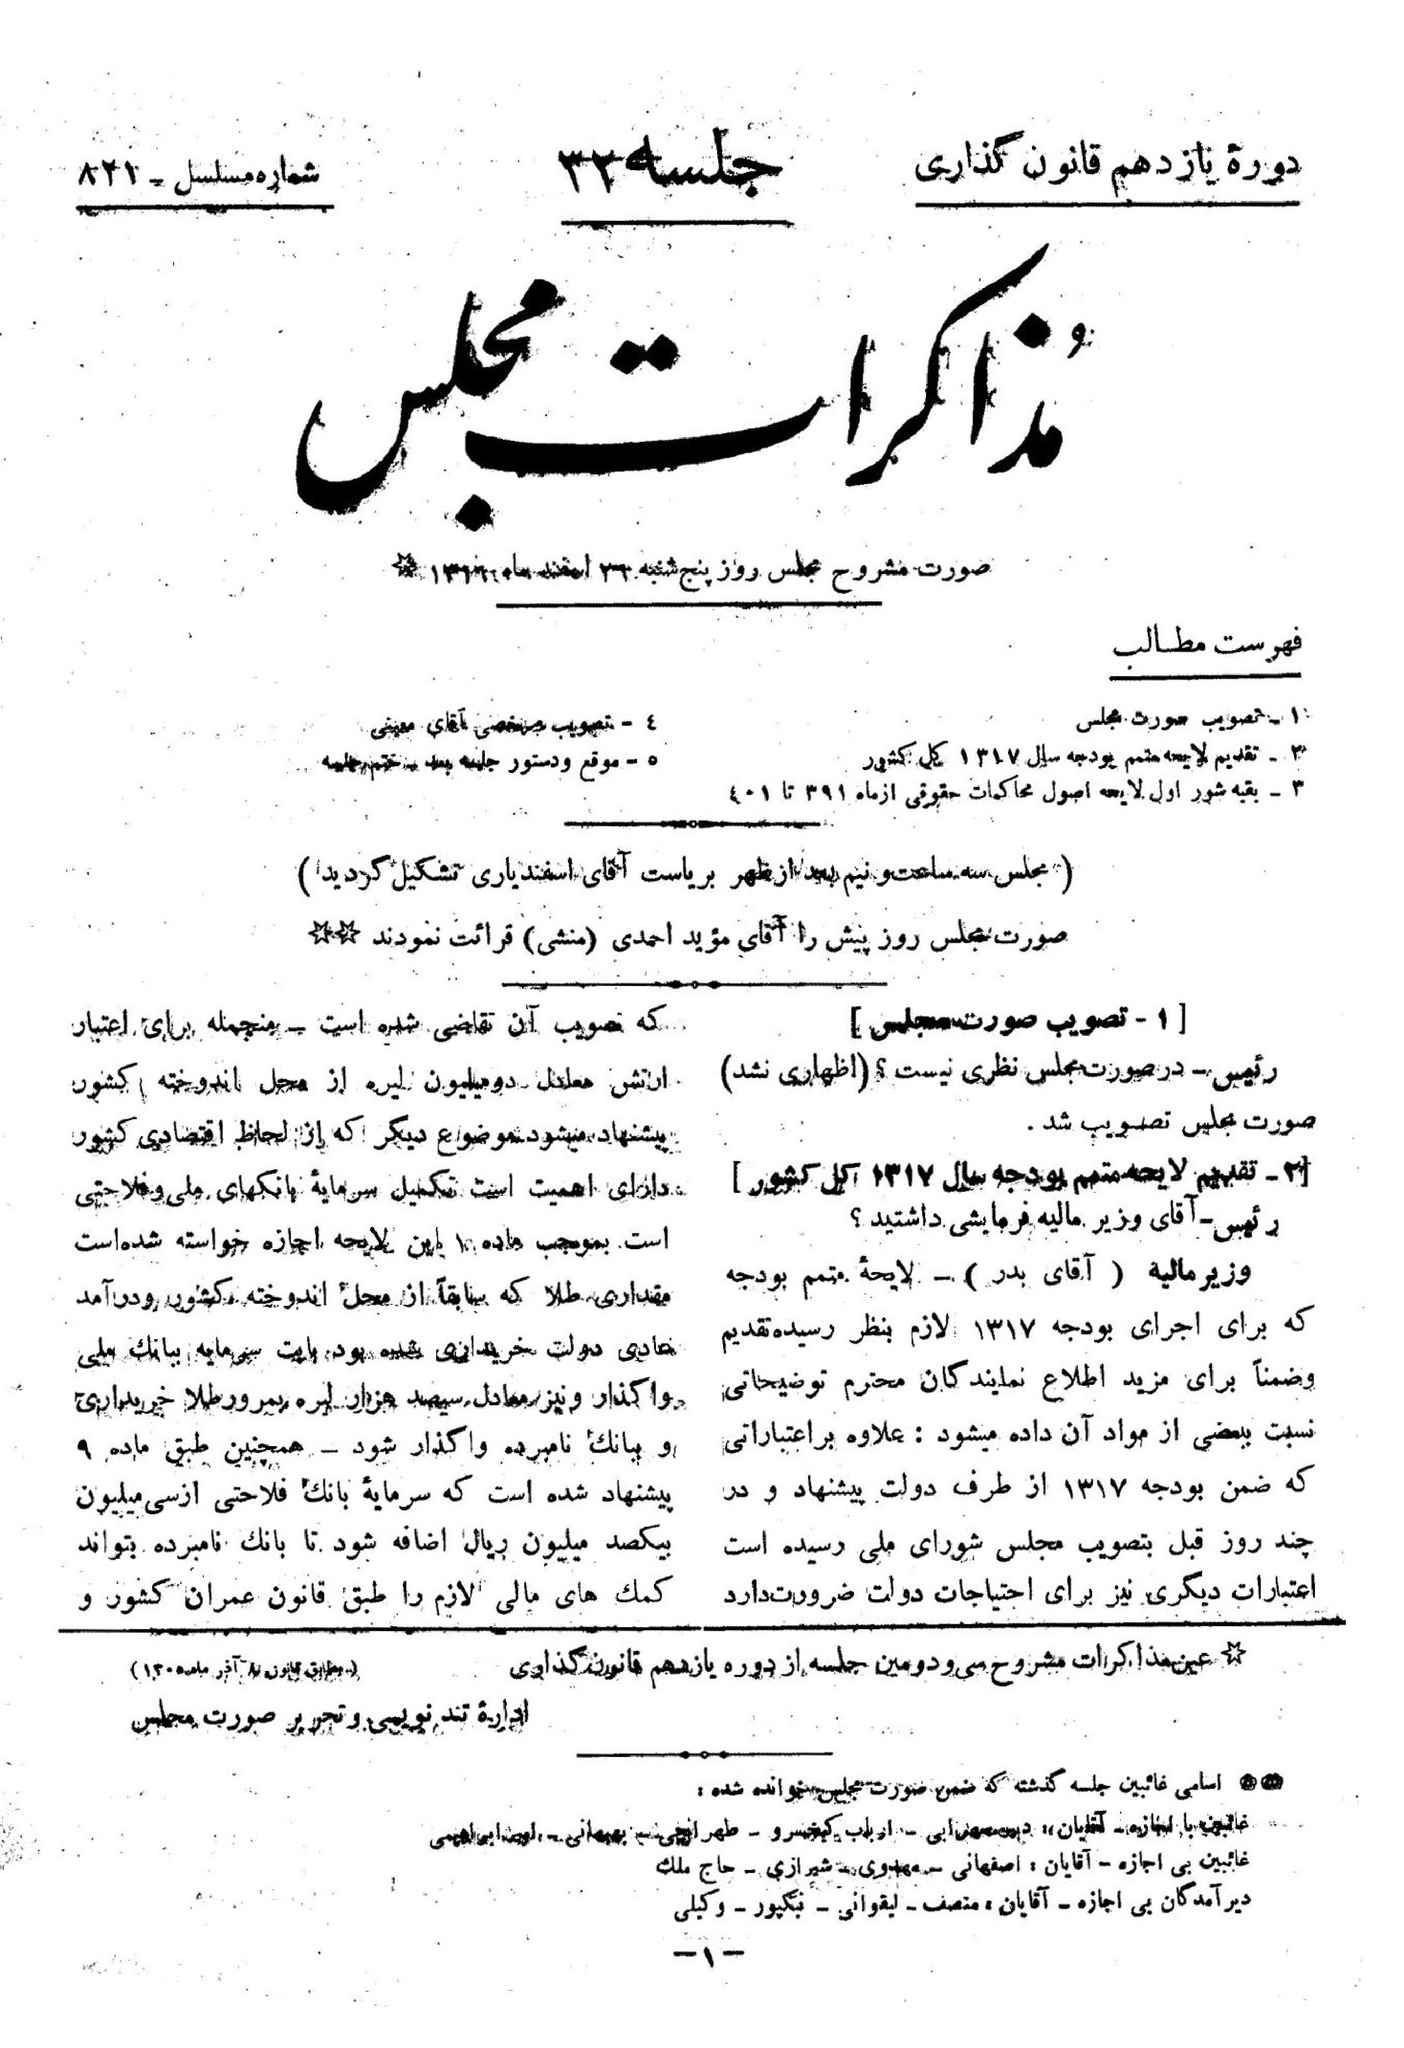 دورهٔ یازدهم قانون گذاری
جلسه ۳۲
شماره مسلسل ـ ۸۲۱
مذاکرات مجلس
صورت مشروح مجلس روز پنج‌شنبه ۲۶ اسفند ماه ۱۳۱۶ ☆
فهرست مطالب
۱ ـ تصویب صورت مجلس
۲ ـ تقدیم لایحه متمم بودجه سال ۱۳۱۷ کل کشور
۳ ـ بقیه شور اول لایحه اصول محاکمات حقوقی از ماه ۳۹۱ تا ۴۰۱
۴ ـ تصویب مرخصی آقای معینی
۵ ـ موقع و دستور جلسه بعد ـ ختم جلسه
( مجلس سه ساعت و نیم بعد از ظهر بریاست آقای اسفندیاری تشکیل گردید )
صورت مجلس روز پیش را آقای مؤید احمدی (منشی) قرائت نمودند ☆☆
[ ۱ - تصویب صورت مجلس ]
رئیس ـ در صورت مجلس نظری نیست ؟ (اظهاری نشد)
صورت مجلس تصویب شد .
[۲ ـ تقدیم لایحه متمم بودجه سال ۱۳۱۷ کل کشور ]
رئیس ـ آقای وزیر مالیه فرمایشی داشتید ؟
وزیر مالیه ( آقای بدر ) ـ لایحهٔ متمم بودجه
که برای اجرای بودجه ۱۳۱۷ لازم بنظر رسیده تقدیم
وضمناً برای مزید اطلاع نمایندگان محترم توضیحاتی
نسبت ببعضی از مواد آن داده میشود : علاوه بر اعتباراتی
که ضمن بودجه ۱۳۱۷ از طرف دولت پیشنهاد و در
چند روز قبل بتصویب مجلس شورای ملی رسیده است
اعتبارات دیگری نیز برای احتیاجات دولت ضرورت دارد
که تصویب آن تقاضی شده است ـ منجمله برای اعتبار
ارتش معادل دو میلیون لیره از محل اندوخته کشور
پیشنهاد میشود موضوع دیگر که از لحاظ اقتصادی کشور
دارای اهمیت است تکمیل سرمایهٔ بانکهای ملی و فلاحتی
است بموجب ماده ۱ این لایحه اجازه خواسته شده است
مقداری طلا که سابقاً از محل اندوخته کشور و درآمد
عادی دولت خریداری شده بود بابت سرمایه ببانک ملی
واگذار و نیز معادل سیصد هزار لیره بمرور طلا خریداری
و ببانک نامبرده واگذار شود ـ همچنین طبق ماده ۹
پیشنهاد شده است که سرمایهٔ بانک فلاحتی از سی میلیون
بیکصد میلیون ریال اضافه شود تا بانک نامبرده بتواند
کمک های مالی لازم را طبق قانون عمران کشور و
☆ عین مذاکرات مشروح سی و دومین جلسه از دوره یازدهم قانون گذاری
(مطابق قانون ۸ آذر ماه ۱۳۰۵)
ادارهٔ تند نویسی و تحریر صورت مجلس
●● اسامی غائبین جلسه گذشته که ضمن صورت مجلس خوانده شده :
غائبین با اجازه ـ آقایان : دبیر سهرابی ـ ارباب کیخسرو ـ طهرانچی ـ بهبهانی ـ
غائبین بی اجازه ـ آقایان : اصفهانی ـ مهدوی ـ شیرازی ـ حاج ملک
دیر آمدگان بی اجازه ـ آقایان : منصف ـ لیقوانی ـ نیکپور ـ وکیلی
ـ ۱ ـ